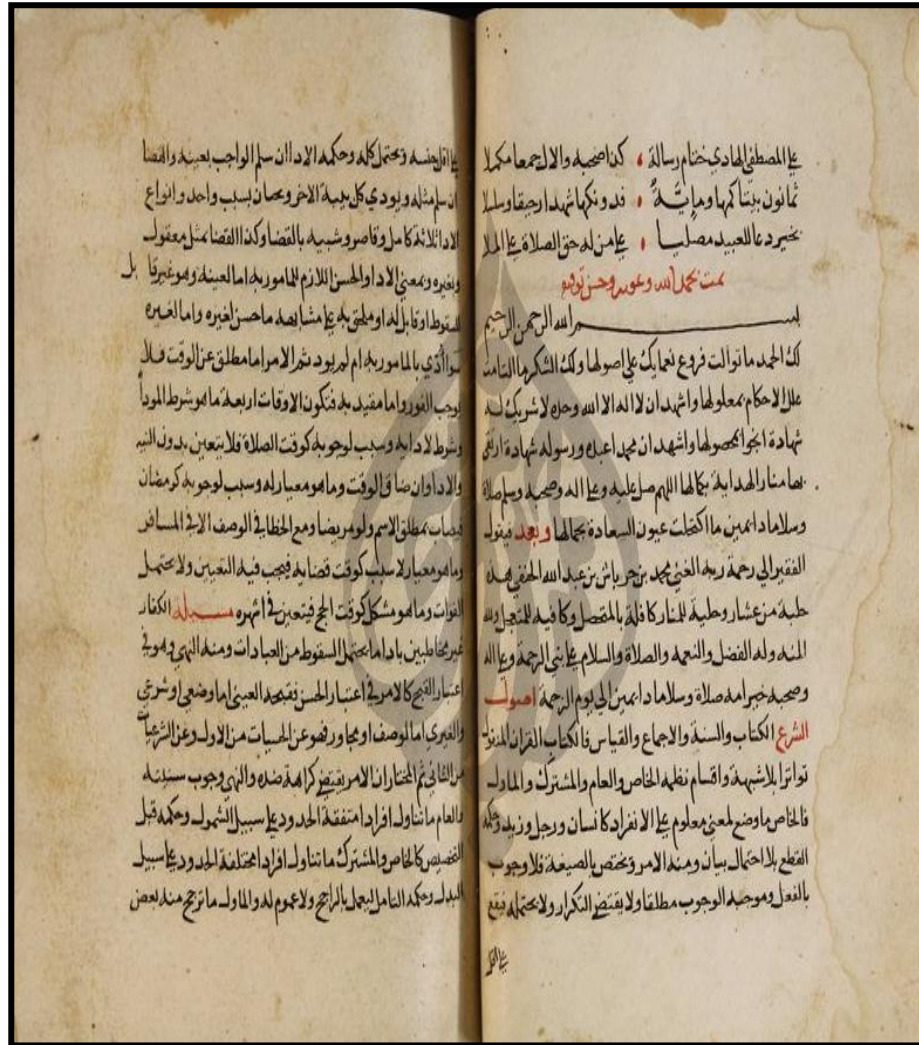 على المصطفى الهادي ختام رسالة كذا صحبه والال جمعا مكملا
ثمانون بيتا كمها وماية فدونكها شهدا رحيقا وسلسلا
بخير دعا للعبيد مصليا على من له حق الصلاة على الملا
تمت بحمد الله وعونه وحسن توفيقه
بسم الله الرحمن الرحيم
لك الحمد ما توالت فروع نعمايك على اصولها ولك الشكر ما التامت
علل الاحكام بمعلولها واشهد ان لا اله الا الله وحده لا شريك له
شهادة انجوا بمحصولها واشهد ان محمدا عبده ورسوله شهادة ارتقى
بها منار الهداية بكمالها اللهم صل عليه وعلى اله وصحبه وسلم صلاة
وسلاما دايمين ما اكتحلت عيون السعادة بجمالها وبعد فيقول
الفقير الى رحمة ربه الغني محمد بن جرباش بن عبد الله الحنفي هذه
حلبة من عشار وحلية للمنار كافلة بالمقصل وكافيه للمتعجل ولله
المنه وله الفضل والنعمه والصلاة والسلام على نبي الرحمة وعلى اله
وصحبه خير امه صلاة وسلاما دايمين الى يوم الرحمة اصول
الشرع الكتاب والسنة والاجماع والقياس فالكتاب القران المنقول
تواترا بلا شبهة واقسام نظمه الخاص والعام والمشترك والماول
فالخاص ما وضع لمعنى معلوم على الانفراد كانسان ورجل وزيد وحكمه
القطع بلا احتمال بيان ومنه الامر ويختص بالصيغة فلا وجوب
بالفعل وموجبه الوجوب مطلقا ولا يقتضي التكرار ولا يحتمله فيقع
على اقل
على اقل جنسه ويحتمل كله وحكمه الادا ان سلم الواجب بعينه والقضا
ان سلم مثله ويودي كل بنية الاخر ويجبان بسبب واحد وانواع
الادا ثلاثة كامل وقاصر وشبيه بالقضا وكذا القضا بمثل معقول
وبغيره وبمعنى الادا والحسن اللازم للمامور به اما لعينه وهو غير قابل
للسقوط او قابل له او ملحق به على مشابهه ما حسن لغيره واما لغيره
سوا أدي بالمامور به ام لم يود ثم الامر اما مطلق عن الوقت فلا
يوجب الفور واما مقيد به فتكون الاوقات اربعة ما هو شرط المودأ
وشرط لادايه وسبب لوجوبه كوقت الصلاة فلا يتعين بدون النيه
والادا وان ضاق الوقت وما هو معيار له وسبب لوجوبه كرمضان
فيصاب بمطلق الاسم ولو مريضا ومع الخطا في الوصف الا في المسافر
وما هو معيار لا سبب كوقت قضايه فيجب فيه التعيين ولا يحتمل
الفوات وما هو مشكل كوقت الحج فيتعين في اشهره مسئله الكفار
غير مخاطبين بادا ما يحتمل السقوط من العبادات ومنه النهي وهو في
اعتبار القبح كالامر في اعتبار الحسن فقبحه العيني اما وضعي او شرعي
والغيري اما لوصف او مجاور فهو عن الحسيات من الاول وعن الشرعيات
من الثاني ثم المختار ان الامر يقتضي كراهة ضده والنهي وجوب سنيته
والعام ما تناول افرادا متفقة الحدود على سبيل الشمول وحكمه قبل
التخصيص كالخاص والمشترك ما تناول افرادا مختلفة الحدود على سبيل
البدل وحكمه التامل ليعمل بالراجح ولا عموم له والماول ما ترجح منه بعض